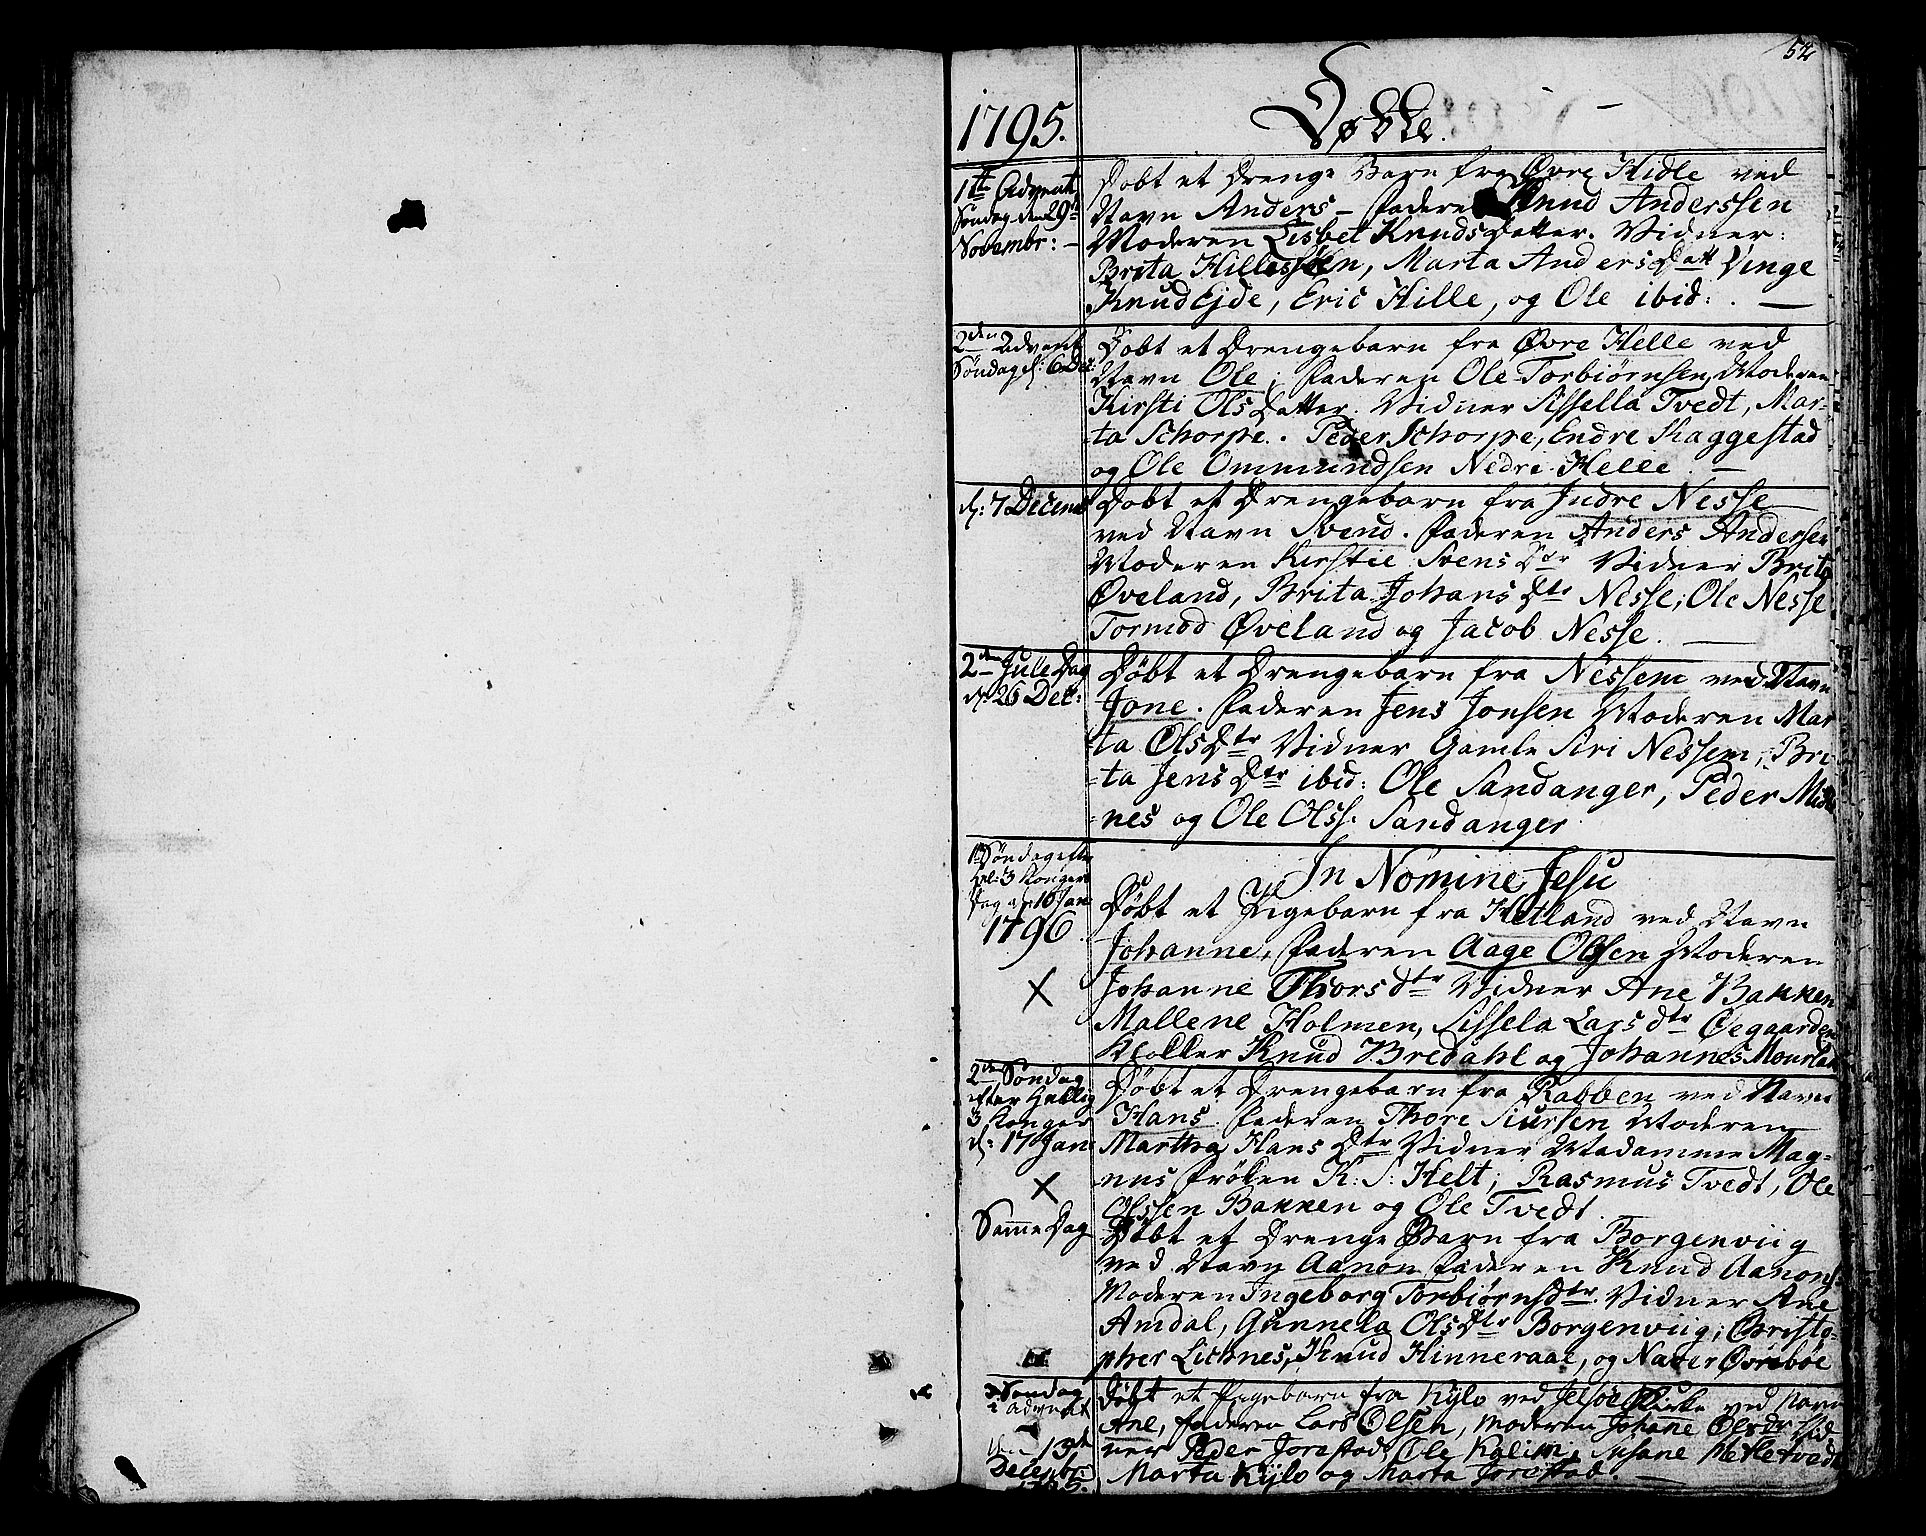 52
1795. Døbte.
1te Advent Søndag den 29de Novembr: –
Døbt et Drenge Barn fra Øvre Hidle ved
Navn Anders – Faderen Knud Anderssen
Moderen Lisbet KnudsDatter. Vidner:
Brita Hillessen, Marta AndersDatt Vinge
Knud Ejde, Eric Hille, og Ole ibid: . —
2den Advent Søndag d: 6 Dec:
Døbt et Drengebarn fra Øvre Helle ved
Navn Ole; Faderen Ole Torbiørnsen, Moderen
Kirsti OlsDatter. Vidner Sissella Tvedt, Mar-
-ta Schorpe. Peder Schorpe, Endre Skaggestad
og Ole Ommundsen Nedre Helle. —
d: 7 Decemb
Døbt et Drengebarn fra Indre Nesse
ved Navn Svend. Faderen Anders Andersen
Moderen Kirstie SvensDtr Vidner Brita
Øveland, Brita JohansDtr Nesse; Ole Nesse
Tormod Øveland og Jacob Nesse. —
2den Jule Dag d: 26 Dec:
Døbt et Drengebarn fra Nessem ved Navn
Jone. Faderen Jens Jonsen Moderen Mar
-ta OlsDtr Vidner Gamle Siri Nessem, Bri
-ta JensDtr ibid: Ole Sandanger, Peder Mid
-nes og Ole Olss. Sandanger
1te Søndag efter Hel: 3 Konger Dag d: 10 Jan
1796
In Nomine Jesu
Døbt et Pigebarn fra Hetland ved Navn
Johanne, Faderen Aage Olssen Moderen
Johanne Thorsdtr Vidner Ane Bakken
Mallene Holmen, Sissela Larsdtr Øegaarden
Knud Bredahl og Johannes
X
2den Søndag efter Hellig 3 Konger d: 17 Jan:
Døbt et Drengebarn fra Rabben ved Navn
Hans Faderen Thore Siursen Moderen
Martha HansDtr Vidner Madamme Mag-
nus Frøken K: S: Helt; Rasmus Tvedt, Ole
Olssen Bakken og Ole Tvedt.
X
Samme Dag
Døbt et Drenge Barn fra Borgenviig
ved Navn Aanon Faderen Knud Aanons:
Moderen Ingeborg Torbiørnsdtr. Vidner Ane
Amdal, Gunnela OlsDtr Borgenviig; Christo-
pher Lichnes, Knud Hinneraae, og Nater Øvrebøe
3 Søndag i Advent den 13de Decembr: 1795.
Døbt et Pigebarn fra Kylv ved Jelsøe Kirke ved Navn
Ane, Faderen Lars Olsen, Moderen Johane Olsdr Vid
ner Peder Jorestad, Ole Kalim, Susane Metletvedt
Marta Kylv og Marta Jorestad. —